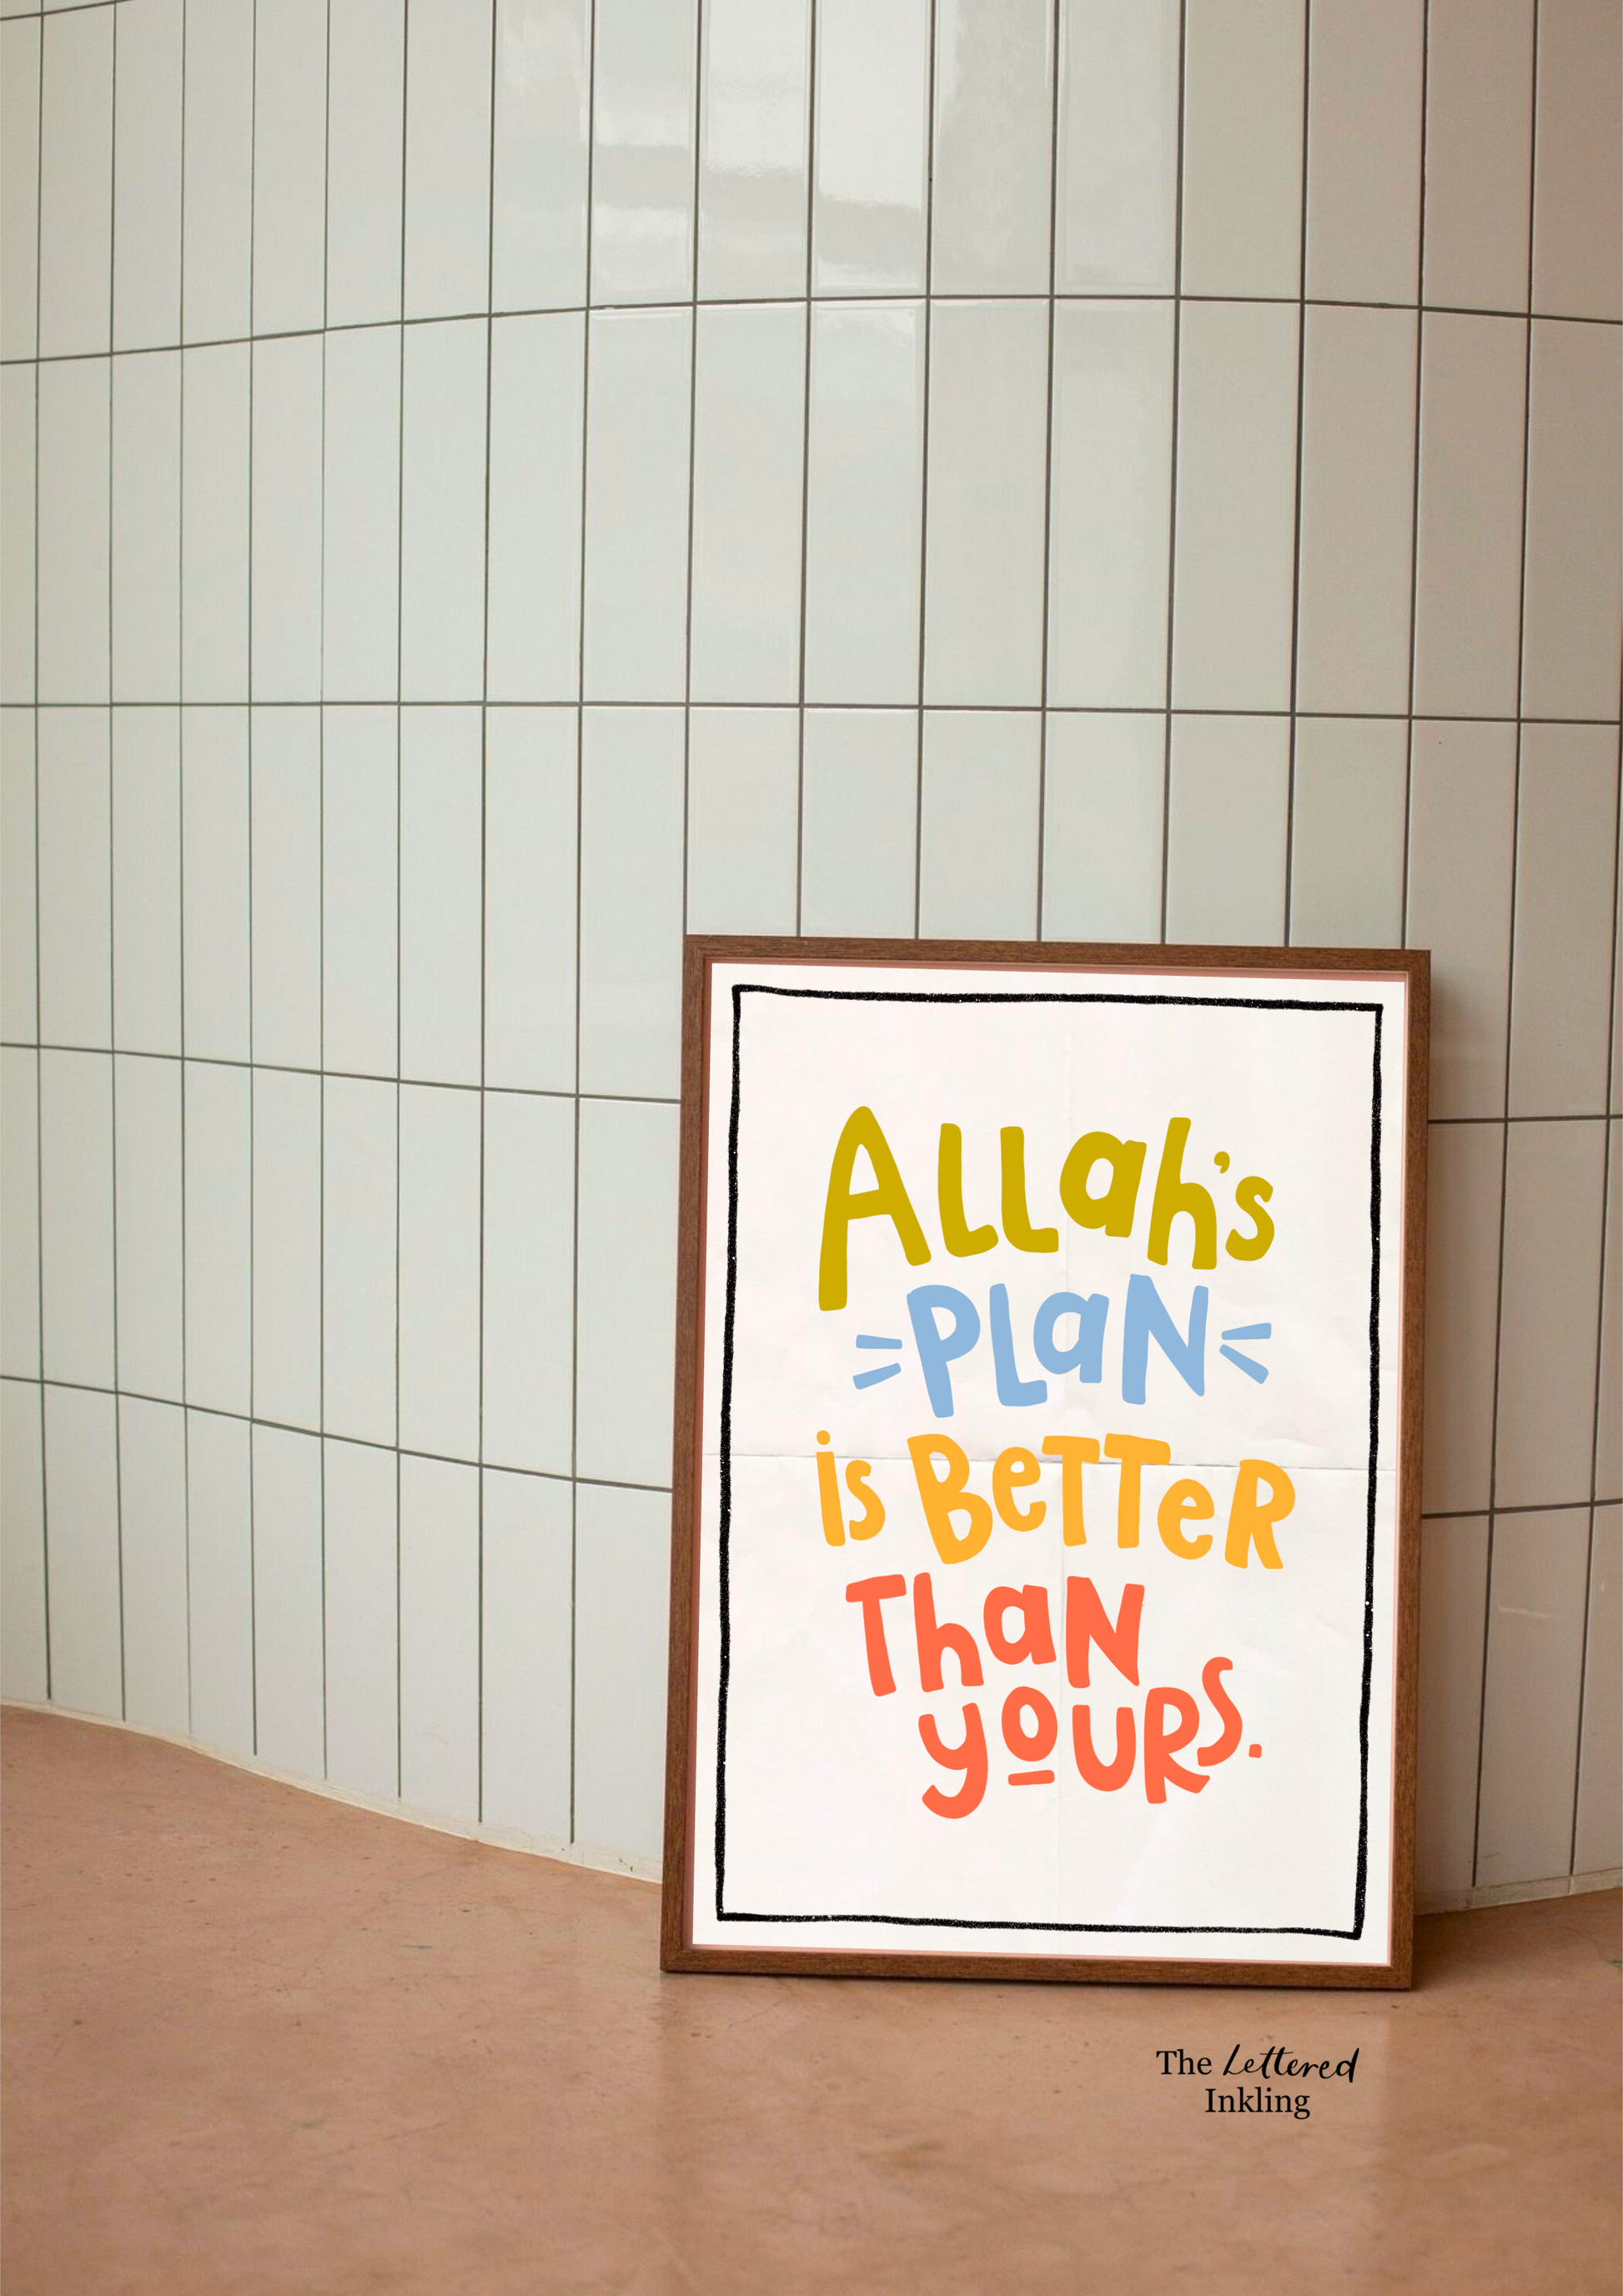 Allah's
PLaN
is BeTTeR
ThaN
yoURS.
The Lettered
Inkling